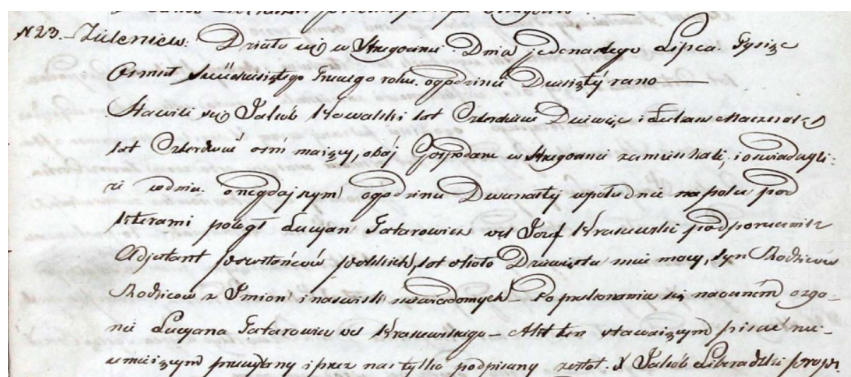 N 23. Działo się w Dnia jedenastego Lipca Tysiąc
Ośmset roku. ogodzinie rano
Stawili się Jakub Kowalski lat Czterdzieści Dziewięć i
lat Czterdzieści ośm maiący, obaj Gospodarze w zamieszkali, i oświadczyli:
iż wdniu onegdajszym ogodzinie Dwunastej wpołudnie na polu pod
poległ Lucyan Tatarowicz vel Józef Kraszewski podporucznik
Adjutant powstańców polskich, lat około Dwadzieścia maiący, syn Rodziców
Rodziców z Imion i nazwisk niewiadomych Po przekonaniu się naocznem ozgo-
nie Lucyana Tatarowicz vel Kraszewskiego Akt ten stawaiącym pisać nie
umieiącym przeczytany i przez nas tylko podpisany został. X Jakub